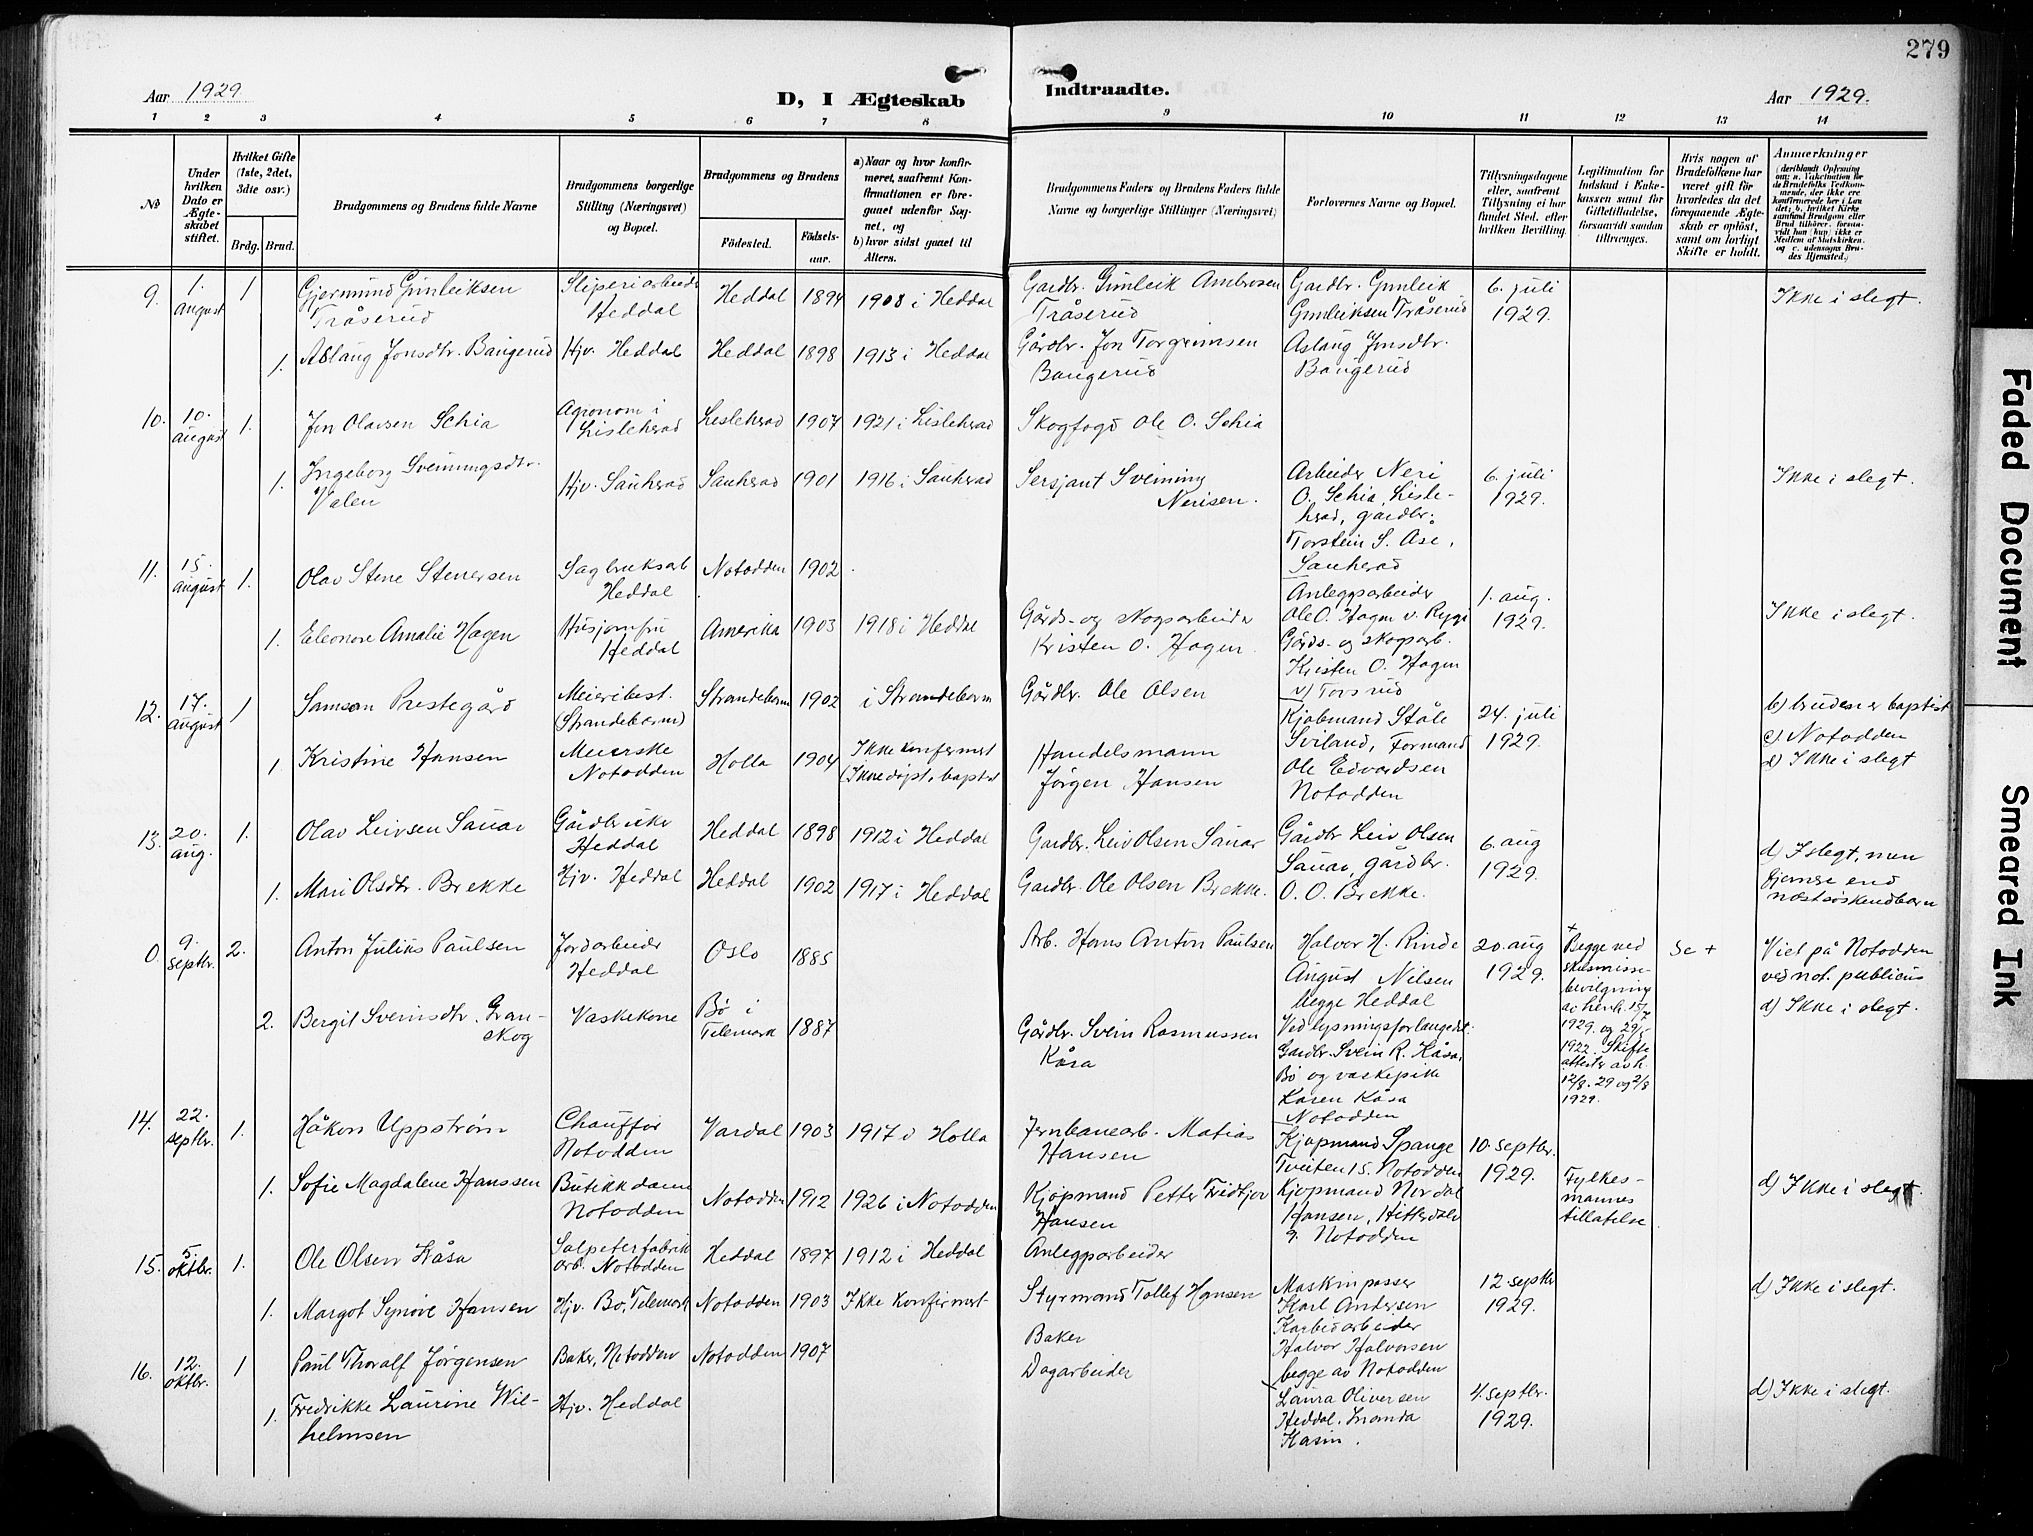 279
Aar 1929
D, I Ægteskab Indtraadte.
Aar 1929.
1 2 3 4 5 6 7 8 9 10 11 12 13 14
No
Under hvilken Dato er Ægteskabet stiftet.
Hvilket Gifte (1ste, 2det, 3die osv.)
Brdg. Brud.
Brudgommens og Brudens fulde Navne
Brudgommens borgerlige Stilling (Næringsvei) og Bopæl.
Brudgommens og Brudens
Fødested.
Fødselsaar.
a) Naar og hvor konfirmeret, saafremt Konfirmationen er foregaaet udenfor Sognet, og
b) hvor sidst gaaet til Alters.
Brudgommens Faders og Brudens Faders fulde Navne og borgerlige Stillinger (Næringsvei)
Forlovernes Navne og Bopæl.
Tillysningsdagene eller, saafremt Tillysning ei har fundet Sted, efter hvilken Bevilling.
Legitimation for Indskud i Enkekassen samt for Giftetilladelse, forsaavidt saadan tiltrænges.
Hvis nogen af Brudefolkene har været gift før hvorledes da det foregaaende Ægteskab er opløst, samt om lovligt Skifte er holdt.
Anmærkninger
(deriblandt Oplysning om: a. Vaccination for de Brudefolks Vedkommende, der ikke ere konfirmerede her i Landet; b. hvilket Kirkesamfund Brudgom eller Brud tilhører, forsaavidt han (hun) ikke er Medlem af Statskirken, og c. udensogns Brudes Hjemsted.)
9. 1. august 1 Gjermund Gunleiksen Tråserud Sliperiarbeider Heddal Heddal 1894 1908 i Heddal Gardbr. Gunleik Ambrosen Tråserud Gardbr. Gunleik Gunleiksen Tråserud 6. juli 1929. Ikke i slegt.
1. Aslaug Jonsdtr. Bangerud Hjv. Heddal Heddal 1898 1913 i Heddal Gårdbr. Jon Torgrimsen Bangerud Aslaug Jonsdtr. Bangerud
10. 10. august 1. Jon Olavsen Schia Agronom i Lislehrad Lislehrad 1907 1921 i Lislehrad Skogfogd Ole O. Schia
1. Ingeborg Sveinungsdtr. Valen Hjv. Sauherad Sauherad 1901 1916 i Sauherad Sersjant Sveinung Nerisen. Arbeider Neri O. Schia, Lislehrad, gårdbr. Torstein S. Ase, Sauherad 6. juli 1929. Ikke i slegt.
11. 15. august 1. Olav Stene Stenersen Sagbruksarb Heddal Notodden 1902
1. Eleonore Amalie Hagen Husjomfru Heddal Amerika 1903 1918 i Heddal Gårds- og skogsarbeider Kristen O. Hagen. Anleggsarbeider Ole O. Hagen v. Rygi Gårds- og skogsarb. Kristen O. Hagen v/ Torsrud 1. aug. 1929. Ikke i slegt.
12. 17. august 1 Samson Prestegård Meieribest. (Strandebarm) Strandebarm 1902 i Strandebarm Gårdbr. Ole Olsen Kjøbmand Ståle Sviland, Formand Ole Edvardsen Notodden 24. juli 1929. b) bruden er baptist
1. Kristine Hansen Meierske Notodden Holla 1904 Ikke konfirmert (Ikke døpt, baptist Handelsmann Jørgen Hansen c) Notodden d) Ikke i slegt
13. 20. aug. 1. Olav Leivsen Sauar Gårdbruker Heddal Heddal 1898 1912 i Heddal Gardbr. Leiv Olsen Sauar Gårdbr Leiv Olsen Sauar, gårdbr. O. O. Brekke. 6. aug 1929.
1. Mari Olsdtr. Brekke Hjv. Heddal Heddal 1902 1917 i Heddal Gardbr. Ole Olsen Brekke. d) I slegt, men fjernere end næstsøskendbarn
0. 9. septbr. 2. Anton Julius Paulsen Jordarbeider Heddal Oslo 1885 Arb. Hans Anton Paulsen Halvor H. Rinde August Nilsen begge Heddal 20. aug 1929. + Begge ved skilsmissebevilgning av henh. 15/7 1929. og 29/5 1922. Skifteattester av h. 12/8. 29 og 2/8 1929. Se + Viet på Notodden ved not. publicus
2. Bergit Sveinsdtr. Granskog Vaskekone Bø i Telemark 1887 Gårdbr. Svein Rasmussen Kåsa Ved lysningsforlangedet. Gardbr. Svein R. Kåsa, Bø og vaskepike Karen Kåsa Notodden d) Ikke i slegt.
14. 22. septbr. 1. Håkon Uppstrøm Chauffør Notodden Vardal 1903 1917 i Holla Jernbanearb. Matias Hansen Kjøpmand Spange Tveiten 15. Notodden 10. septbr. 1929.
1. Sofie Magdalene Hanssen Butikkdame Notodden Notodden 1912 1926 i Notodden Kjøpmand Petter Fridtjov Hansen Kjøpmand Nordal Hansen, Hitterdalv 9. Notodden Fylkesmannes tillatelse d) Ikke i slegt.
15. 5 oktbr. 1. Ole Olsen Kåsa Salpeterfabrikarb. Notodden Heddal 1897 1912 i Heddal Anleggsarbeider
1. Margot Synøve Hansen Hjv. Bø, Telemark Notodden 1903 Ikke konfirmert Styrmand Tollef Hansen Maskinpasser Karl Andersen Karbidarbeider Halvor Halvorsen begge av Notodden 12 septbr 1929. d) Ikke i slegt.
16. 12. oktbr. 1 Paul Thoralf Jørgensen Baker, Notodden Notodden 1907 Baker
1. Fredrikke Laurine Wilhelmsen Hjv. Heddal Dagarbeider Laura Oliversen Heddal. 4. septbr. 1929. d) Ikke i slegt.
Faded Document
Smeared Ink